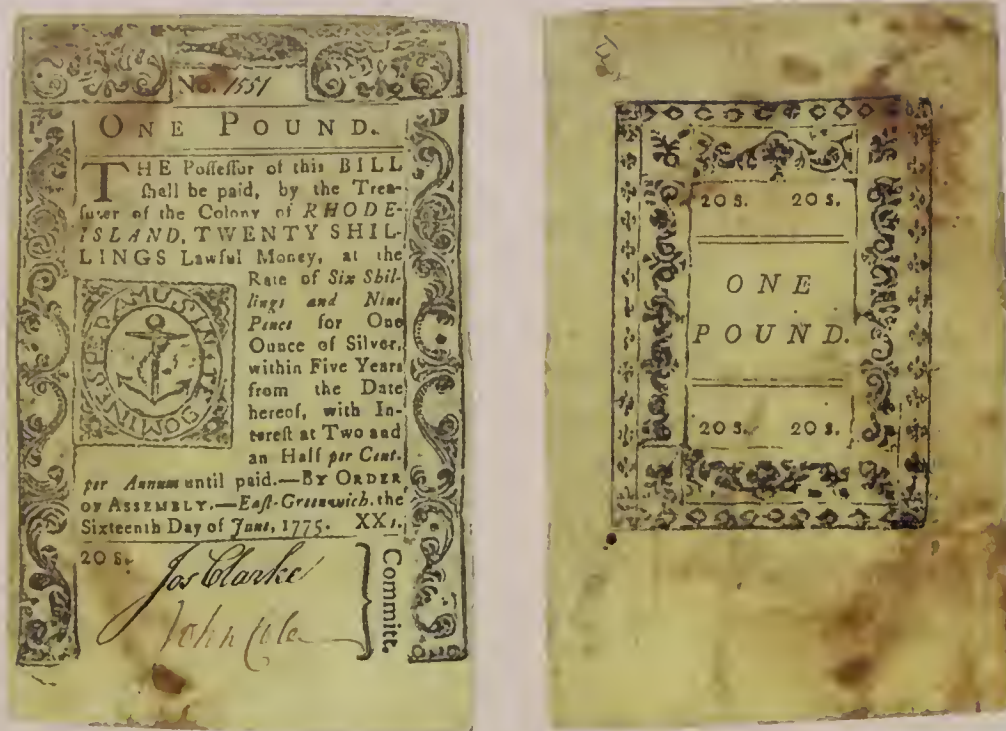 No. 1551
ONE POUND.
THE Poſſeſſor of this BILL
ſhall be paid, by the Trea-
ſurer of the Colony of RHODE-
ISLAND, TWENTY SHIL-
LINGS Lawful Money, at the
Rate of Six Shil-
lings and Nine
Pence for One
Ounce of Silver,
within Five Years
from the Date
hereof, with In-
tereſt at Two and
an Half per Cent.
per Annum until paid.—BY ORDER
OF ASSEMBLY.—Eaſt-Greenwich, the
Sixteenth Day of June, 1775. XXs.
20 s.
Jos Clarke
John Cole
Committ.
20 s. 20 s.
ONE
POUND.
20 s. 20 s.